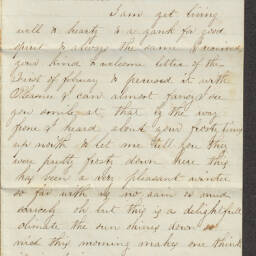 I am yet living
well & hearty & a yank for good
spirit & always the same I received
your kind & welcome letter of the
first of febuary & perused it with
Pleasure I can almost fancy I see
you smile at that by the way
gene I heard about your frosty times
up north & let me tell you they
were pretty frosty down here this
has been a very pleasant winter
so far with us no rain or mud
scarcely oh but this is a delightfull
climate the sun shines down so
mid this morning makes one think